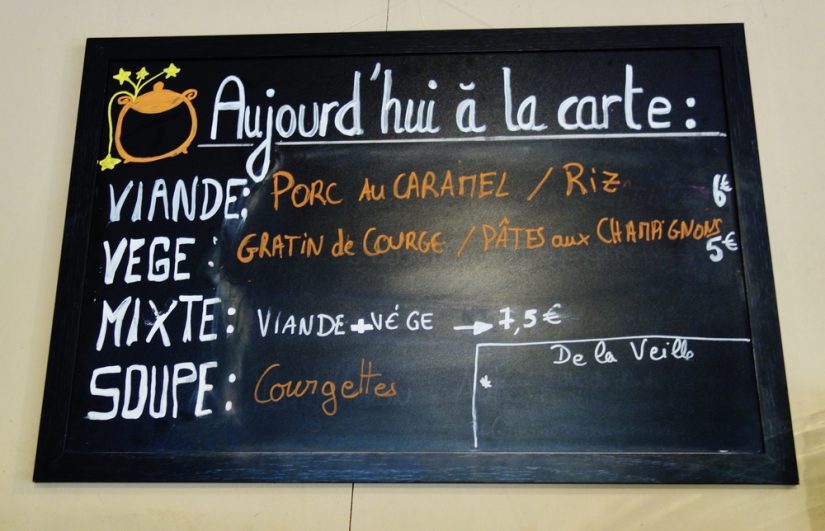 Aujourd'hui à la carte:
VIANDE: PORC AU CARAMEL / RIZ 6€
VEGE: GRATIN de COURGE / PÂTES aux CHAMPIGNONS 5€
MIXTE: VIANDE + VÉGE → 7,5€
De la Veille
SOUPE: Courgettes
*